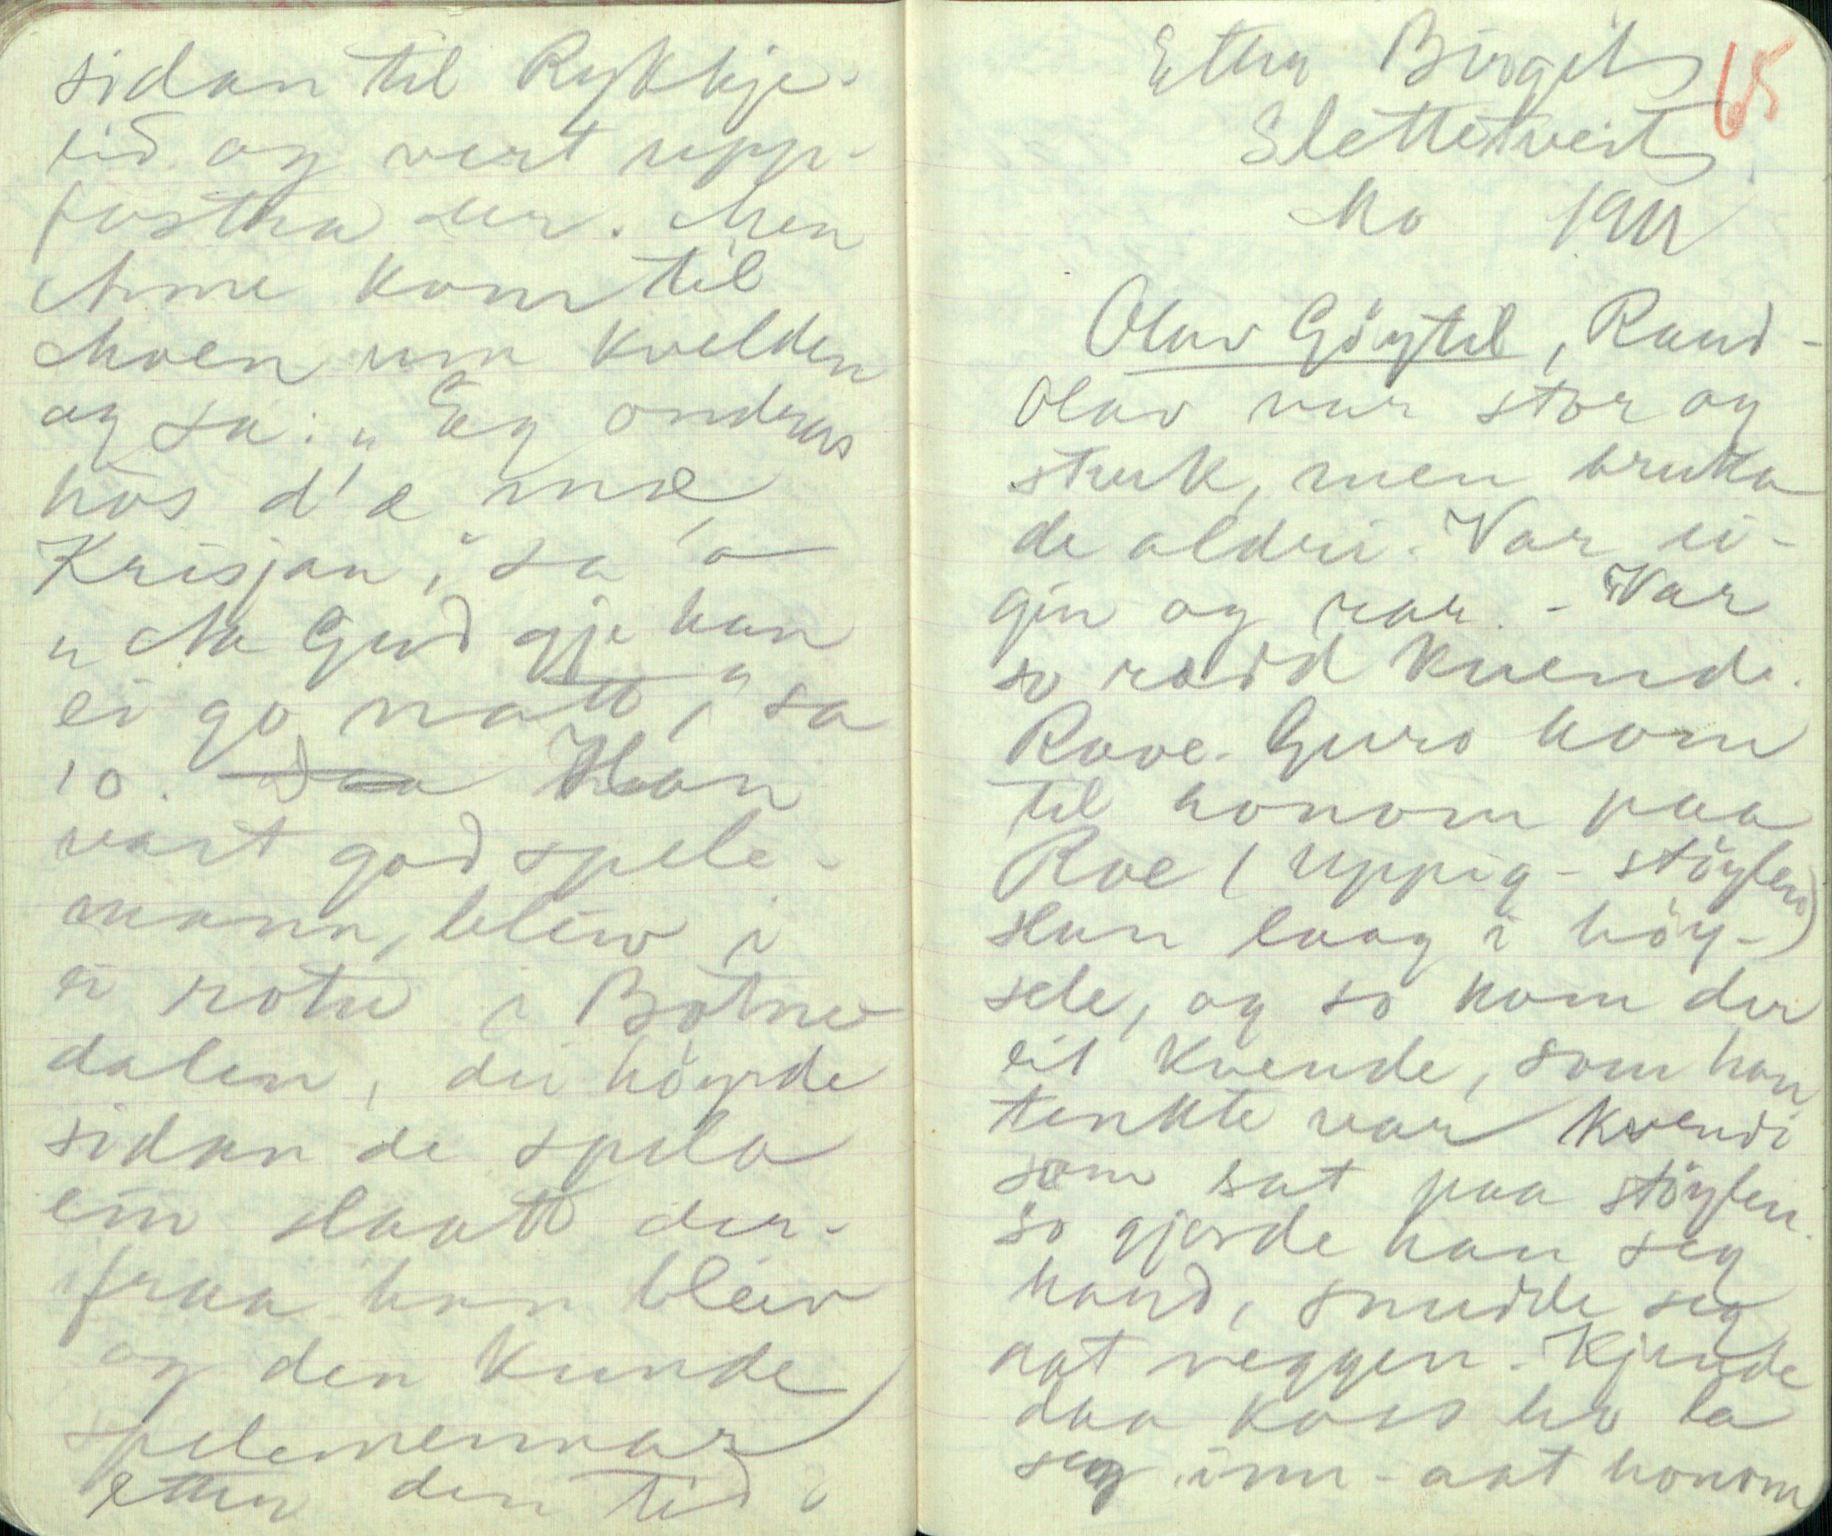 sidan til Rykkje-
eid og vert upp-
fostra der. Men
Anne kom til
Moen um kvelden
og sa: „Eg ondras
hòs d'æ mæ
Krisjan," sa 'o
„Aa Gud gje han
ei go natt," sa
'o. Daa Han
vart god spele-
mann, bleiv i
ei rotu i Bótne-
dalen, dei höyrde
sidan de spela
ein slaatt der-
ifraa han bleiv
og den kunde
spelemennar
etter den tid
Etter Birgit
Slettetveit
Mo 1911
65
Olav Göytil, Raud-
Olav var stor og
sterk, men bruka
de aldri. Var ei-
gin og rar. - Var
so rædd kvende.
Rove-Guro kom
til honom paa
Roe (uppig-stöylen)
Han laag i höy-
sele, og so kom der
eit kvende, som han
tenkte var kvendi
som sat paa stöylen.
so gjorde han seg
hard, snudde seg
aat veggen. Kjende
daa koss ho la
seg inn-aat honom